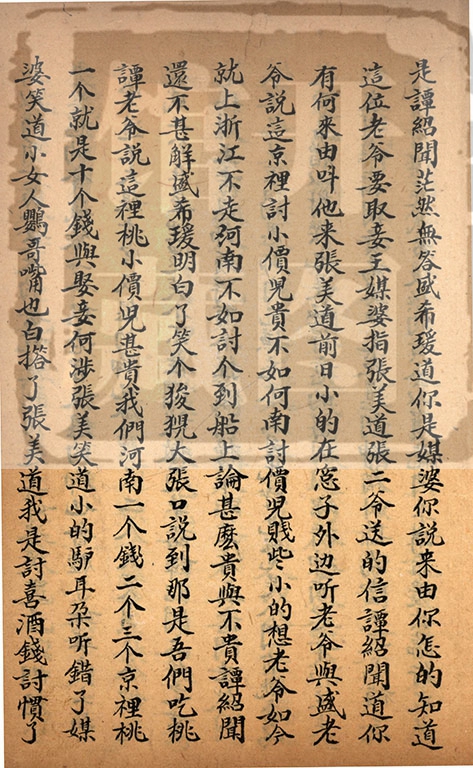 是譚紹聞茫然無答盛希瑗道你是媒婆你說来由你怎的知道
這位老爺要取妾王媒婆指張美道張二爺送的信譚紹聞道你
有何來由呌他来張美道前日小的在窓子外边听老爺與盛老
爷説這京裡討小價児貴不如何南討價児賎些小的想老爺如今
就上浙江不走河南不如討个到船上論甚麽貴與不貴譚紹聞
還不甚觧盛希瑗明白了笑个狻猊大張口説到那是吾們吃桃
譚老爷說這裡桃小價児甚貴我們河南一个錢二个三个京裡桃
一个就是十个錢與娶妾何涉張美笑道小的馿耳朶听錯了媒
婆笑道小女人鸚哥嘴也白撘了張美道我是討喜酒錢討慣了